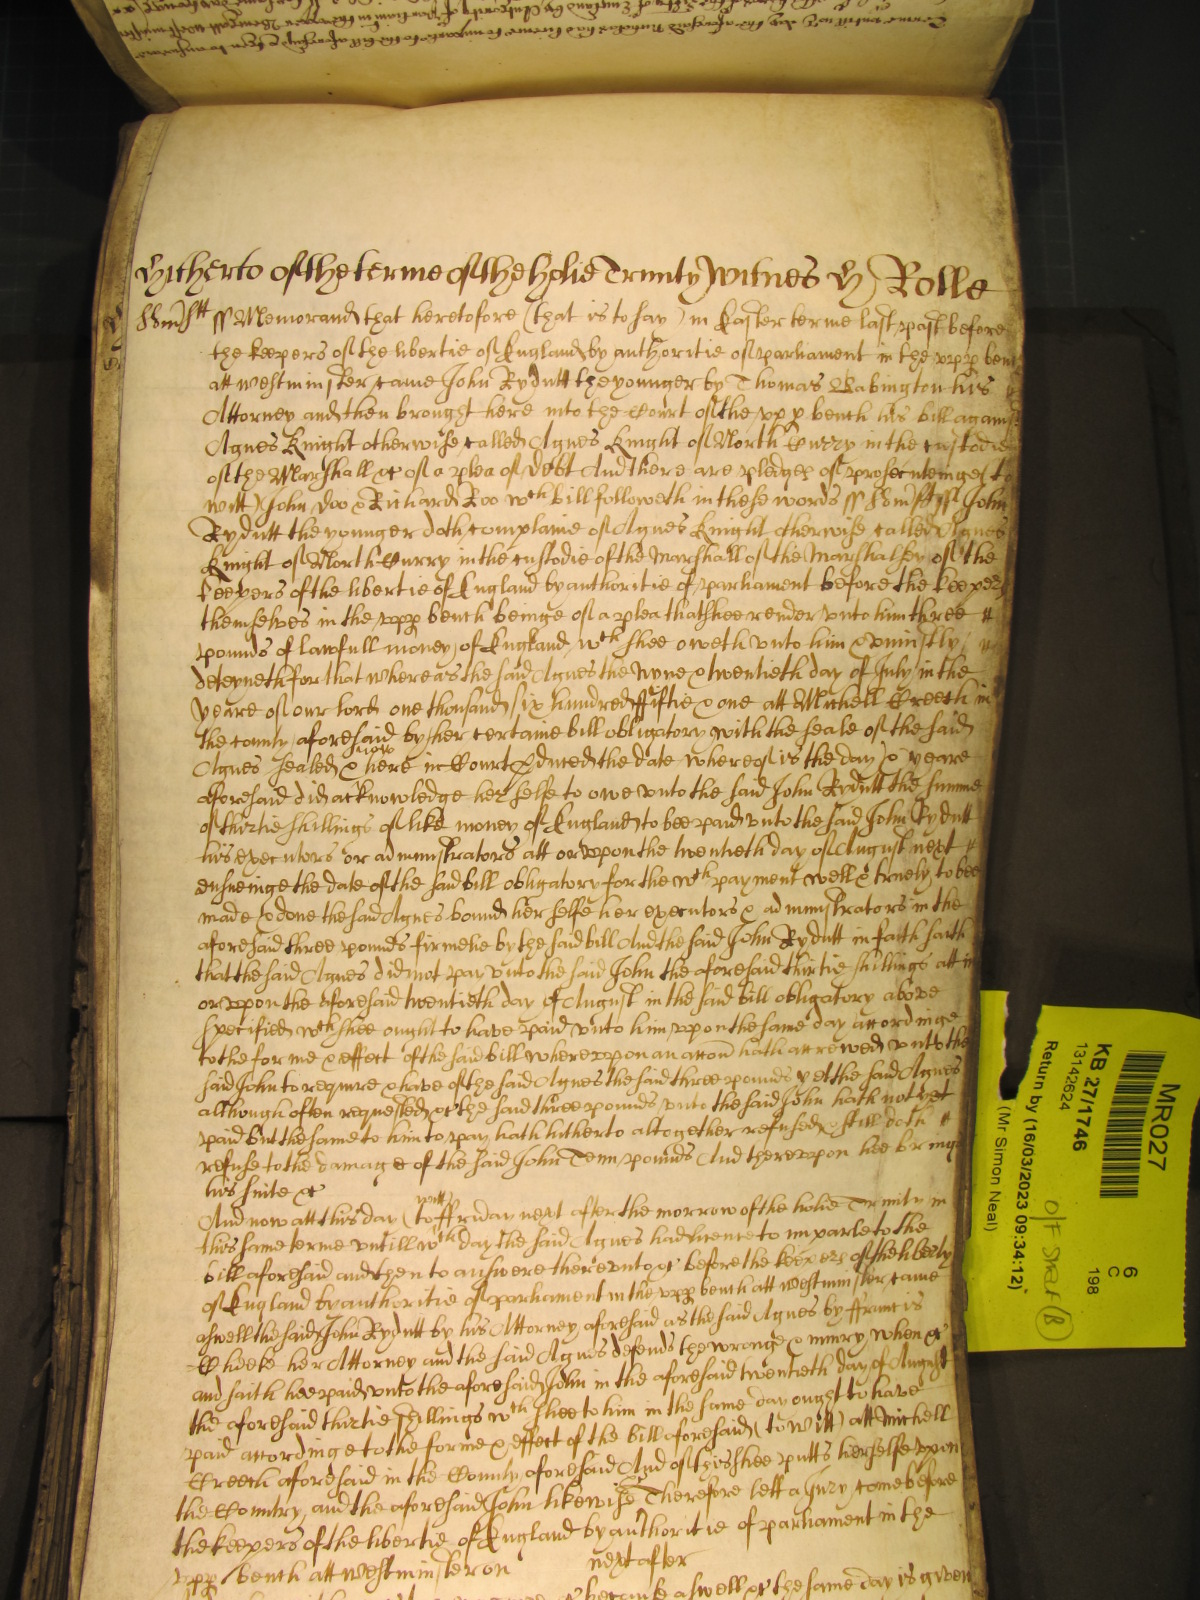 Hitherto of the terme of the holie Trinity Witnes H Rolle
Som̃stt ss Memorand that heretofore (that is to say) in Easter terme last past before
the keepers of the libertie of England by authoritie of parliament in the vpp bench
att Westminster came John Rydutt the younger by Thomas Babington his
Attorney and then brought here into the Court of the vpp bench his bill against
Agnes Knight otherwise called Agnes Knight of North Curry in the custodie
of the Marshall &c of a plea of debt And there are pledges of prosecuteinge (to
witt) John Doo & Richard Roo wch bill followeth in these words ss Som̃stt ss John
Rydutt the younger doth complaine of Agnes Knight otherwise called Agnes
Knight of North Curry in the custodie of the Marshall of the Marshalsey of the
keepers of the libertie of England by authoritie of parliament before the keepers
themselves in the vpp bench beinge of a plea that shee render vnto him three
pounds of lawfull money of England wch shee oweth vnto him & vniustly
deteyneth for that whereas the said Agnes the nyne & twentieth day of July in the
yeare of our lord one thousand six hundred fiftie & one att Michell Creech in
the county aforesaid by her certaine bill obligatory with the seale of the said
Agnes sealed & here now in Court produced the date whereof is the day & yeare
aforesaid did acknowledge her selfe to owe vnto the said John Rydutt the summe
of thirtie shillings of like money of England to bee paid vnto the said John Rydutt
his executors or administrators att or vpon the twentieth day of August next
ensueinge the date of the said bill obligatory for the wch payment well & truely to bee
made & done the said Agnes bound her selfe her executors & administrators in the
aforesaid three pounds firmelie by the said bill And the said John Rydutt in faith saith
that the said Agnes did not pay vnto the said John the aforesaid thirtie shillings att
or vpon the aforesaid twentieth day of August in the said bill obligatory above
specified wch shee ought to have paid vnto him vpon the same day accordinge
to the forme & effect of the said bill wherevpon an accon hath accrewed vnto the
said John to require & have of the said Agnes the said three pounds yet the said Agnes
although often requested &c the said three pounds vnto the said John hath not yet
paid but the same to him to pay hath hitherto altogether refused & still doth
refuse to the damage of the said John Tenn pounds And therevpon hee bringe
his suite &c
And now att this day (to witt) ffriday next after the morrow of the holie Trinity in
this same terme vntill wch day the said Agnes had licence to imparle to the
bill aforesaid and then to answere therevnto &c before the keepers of the liberty
of England by authoritie of parliament in the vpp bench att Westminster came
aswell the said John Rydutt by his Attorney aforesaid as the said Agnes by ffrancis
Cheeke her Attorney and the said Agnes defends the wronge & iniury when &c
and saith hee paid vnto the aforesaid John in the aforesaid twentieth day of August
the aforesaid thirtie shillings wch shee to him in the same day ought to have
paid accordinge to the forme & effect of the bill aforesaid (to witt) att Michell
Creech aforesaid in the County aforesaid And of this shee putts herselfe vpon
the Country and the aforesaid John likewise Therefore lett a Jury come before
the keepers of the libertie of England by authoritie of parliament in the
vpp bench att Westminster on next after
because aswell &c the same day is given
MR027
6
C
198
KB 27/1746
13142624
O/F Shelf (B)
Return by (16/03/2023 09:34:12)
(Mr Simon Neal)